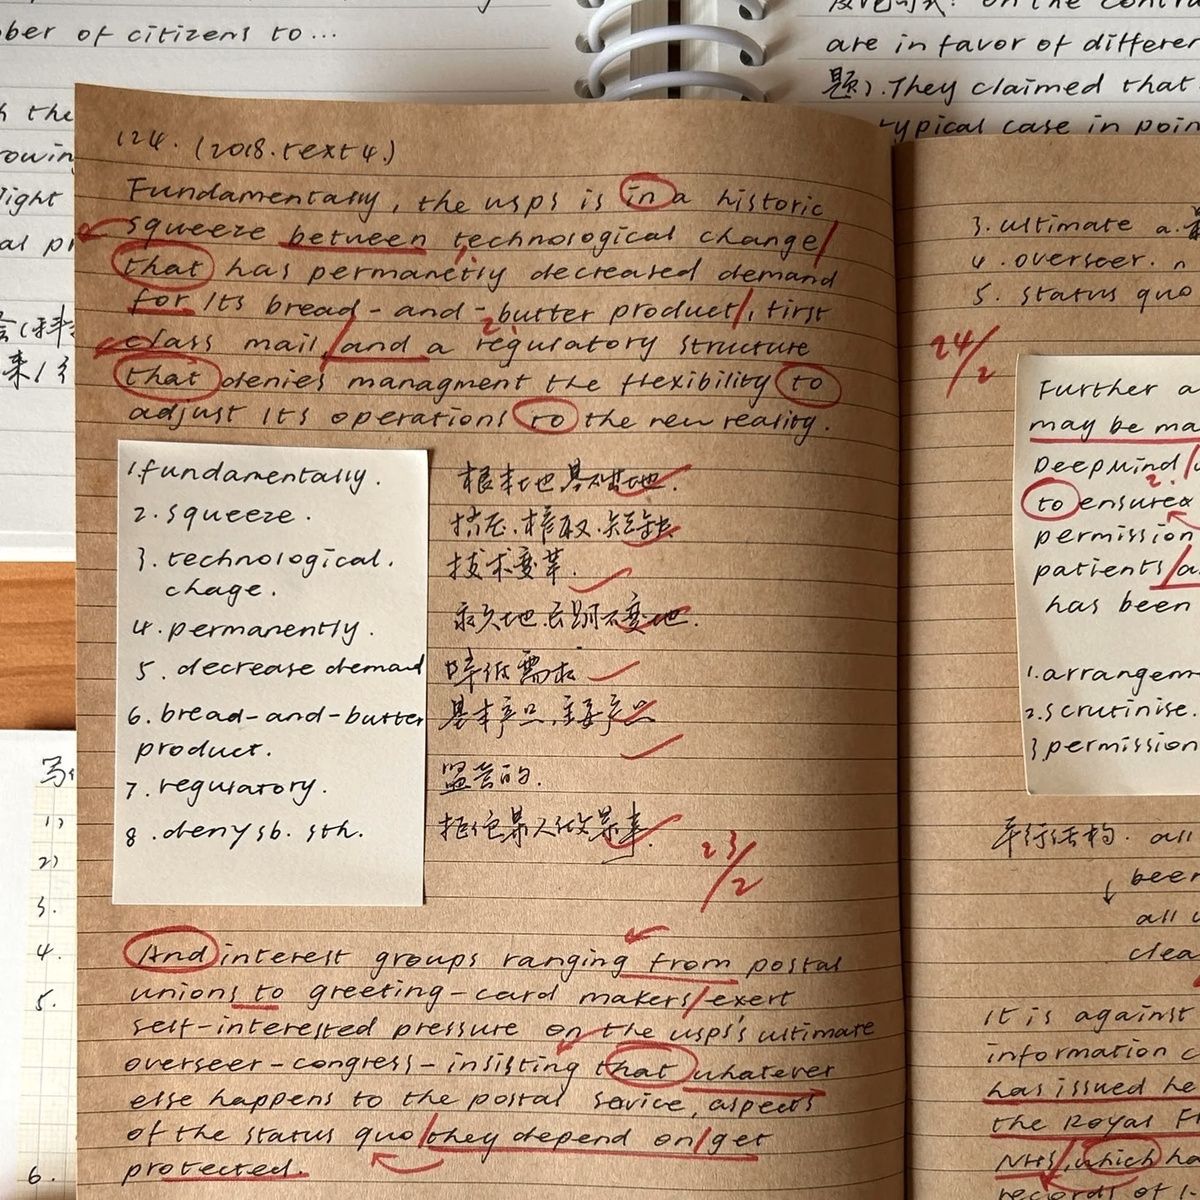 ber of citizens to...
are in favor of differen
题). They claimed that
typical case in poin
124. (2018. text 4.)
Fundamentally, the usps is in a historic
squeeze between technological change/
that has permanetly decreased demand
for its bread-and-butter product/, first
class mail,/and a regulatory structure
that denies managment the flexibility to
adjust its operations to the new reality.
1. fundamentally. 根本地.基础地.
2. squeeze. 挤压.榨取.短缺
3. technological. 技术变革.
chage.
4. permanently. 永久地.长期不变地.
5. decrease demand 降低需求
6. bread-and-butter 基本产品,主要产品
product.
7. regulatory. 监管的.
8. deny sb. sth. 拒绝某人做某事.
23/2
And interest groups ranging from postal
unions to greeting-card makers/exert
self-interested pressure on the usps's ultimate
overseer-congress-insisting that whatever
else happens to the postal service, aspects
of the status quo/they depend on/get
protected.
3. ultimate a.
4. overseer. n
5. status quo
24/2
Further a
may be ma
Deepmind/
to ensure
permission
patients/a
has been
1. arrangem
2. scrutinise.
3. permission
平行结构. all
been
all
clea
It is against
information c
has issued he
the Royal F
NHS/, which ha
records of 1.
1)
2)
3.
4.
5.
6.